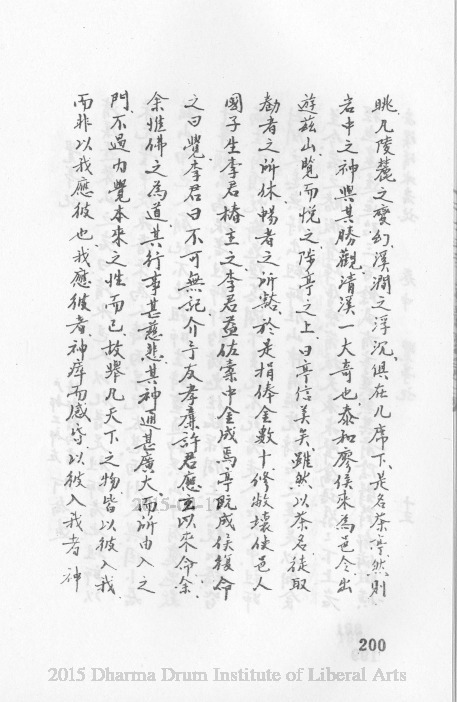 眺、凡陵麓之變幻、溪澗之浮沉、俱在几席下、是名茶亭、然則
岩中之神與其勝觀、清溪一大奇也、泰和廖侯來為邑令、出
遊茲山、覽而悅之、陟亭之上、曰、亭信美矣、雖然、以茶名、徒取
勸者之所休、暢者之所豁、於是捐俸金數十、修敝壞、使邑人
國子生李君樁主之、李君益佐橐中金成焉、亭既成、侯復命
之曰覺、李君曰、不可無記、介予友孝廉許君應立以來命余、
余惟佛之為道、其行事甚慈悲、其神通甚廣大、而所由入之
門、不過內覺本來之性而已、故舉凡天下之物皆以彼入我、
而非以我應彼也、我應彼者、神瘁而感昏、以彼入我者、神
200
2015-0
2015 Dharma Drum Institute of Liberal Arts